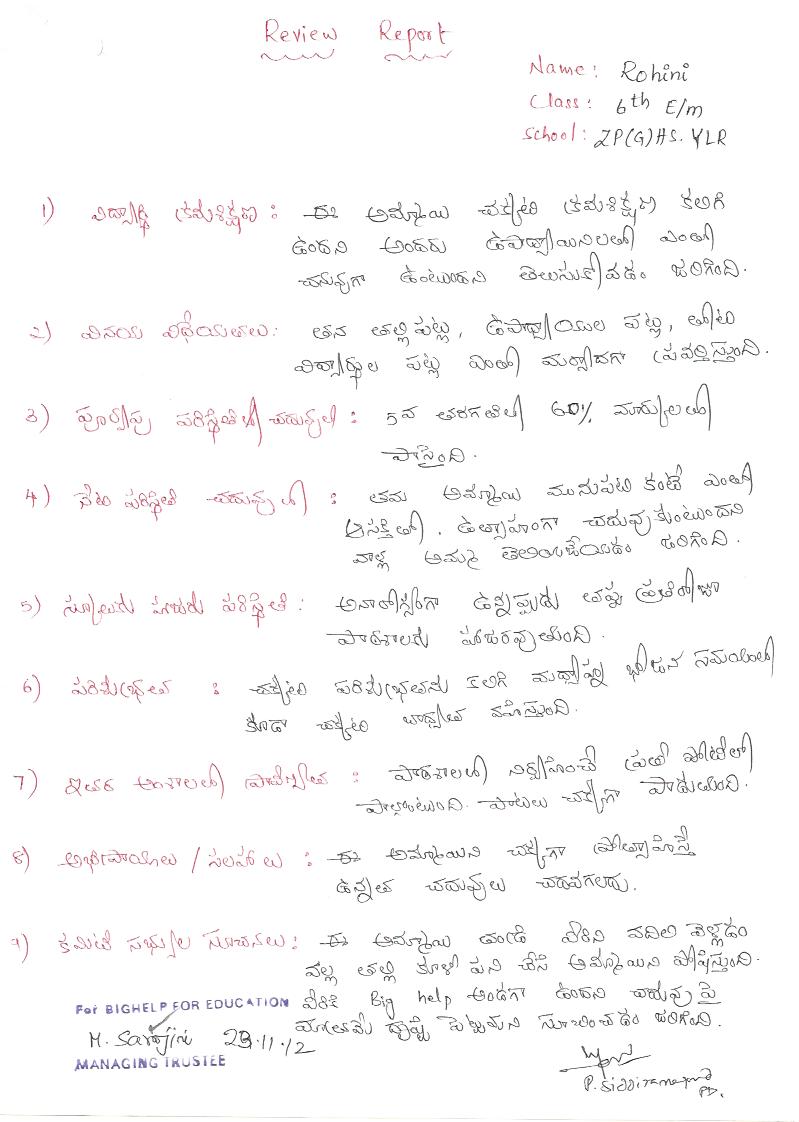 Review Report
Name: Rohini
Class: 6th E/m
School: ZP(G)HS. YLR
1) విద్యార్థి క్రమశిక్షణ : ఈ అమ్మాయి చక్కటి క్రమశిక్షణ కలిగి
ఉందని అందరు ఉపాధ్యాయినిలతో ఎంతో
చనువుగా ఉంటుందని తెలుసుకోవడం జరిగింది.
2) వినయ విధేయతలు: తన తల్లి పట్ల, ఉపాధ్యాయుల పట్ల, తోటి
విద్యార్థుల పట్ల ఎంతో మర్యాదగా ప్రవర్తిస్తుంది.
3) పూర్వపు పరిస్థితిలో చదువులో : 5వ తరగతిలో 60% మార్కులతో
పాసైంది.
4) నేటి పరిస్థితి చదువులో : తమ అమ్మాయి మునుపటి కంటే ఎంతో
ఆసక్తితో, ఉత్సాహంగా చదువుకుంటుందని
వాళ్ళ అమ్మ తెలియజేయడం జరిగింది.
5) స్కూలుకు హాజరు పరిస్థితి : అనారోగ్యంగా ఉన్నప్పుడు తప్ప ప్రతిరోజూ
పాఠశాలకు హాజరవుతుంది.
6) పరిశుభ్రత : చక్కటి పరిశుభ్రతను కలిగి మధ్యాహ్న భోజన సమయంలో
కూడా చక్కటి బాధ్యత వహిస్తుంది.
7) ఇతర అంశాలలో ప్రావీణ్యత : పాఠశాలలో నిర్వహించే ప్రతి పోటీలో
పాల్గొంటుంది. పాటలు చక్కగా పాడుతుంది.
8) అభిప్రాయాలు / సలహాలు : ఈ అమ్మాయిని చక్కగా ప్రోత్సాహిస్తే
ఉన్నత చదువులు చదవగలదు.
9) కమిటి సభ్యుల సూచనలు: ఈ అమ్మాయి తండ్రి వీరిని వదిలి వెళ్ళడం
వల్ల తల్లి కూలి పని చేసి అమ్మాయిని పోషిస్తుంది.
వీరికి Big help అండగా ఉందని చదువు పై
మాత్రమే దృష్టి పెట్టమని సూచించడం జరిగింది.
For BIGHELP FOR EDUCATION
M. Sarojini 23.11.12
MANAGING TRUSTEE